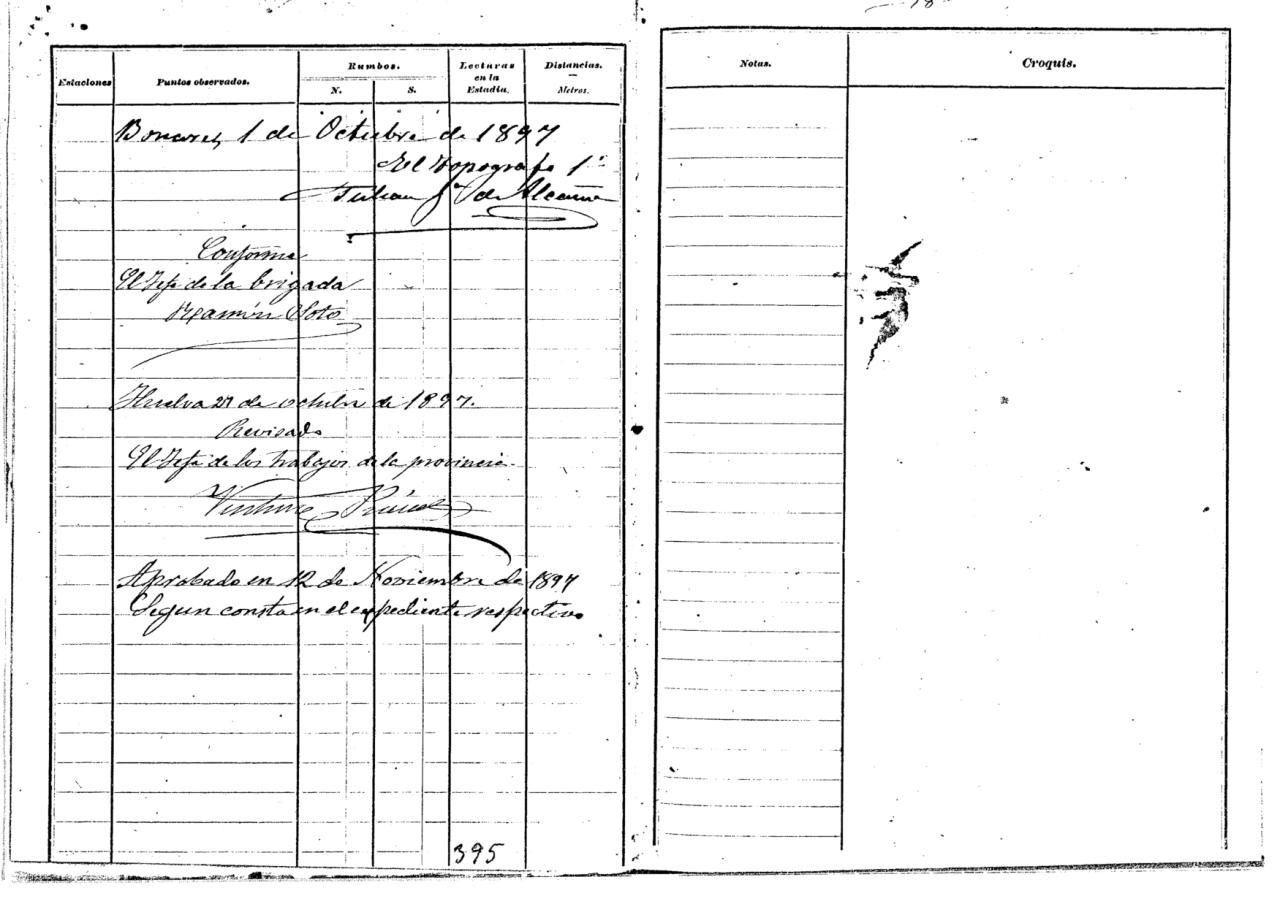 18
Estaciones
Puntos observados.
Rumbos.
N.
S.
Lecturas
en la
Estadia.
Distancias.
Metros.
Bonares, 1 de Octubre de 1897
El topografo 1º
de
Conforme
El Jefe de la brigada
Ramón Soto
Huelva 27 de octubre de 1897.
Revisado
El Jefe de los trabajos de la provincia.
Ventura
Aprobado en 12 de Noviembre de 1897
Segun consta en el expediente respectivo
395
Notas.
Croquis.